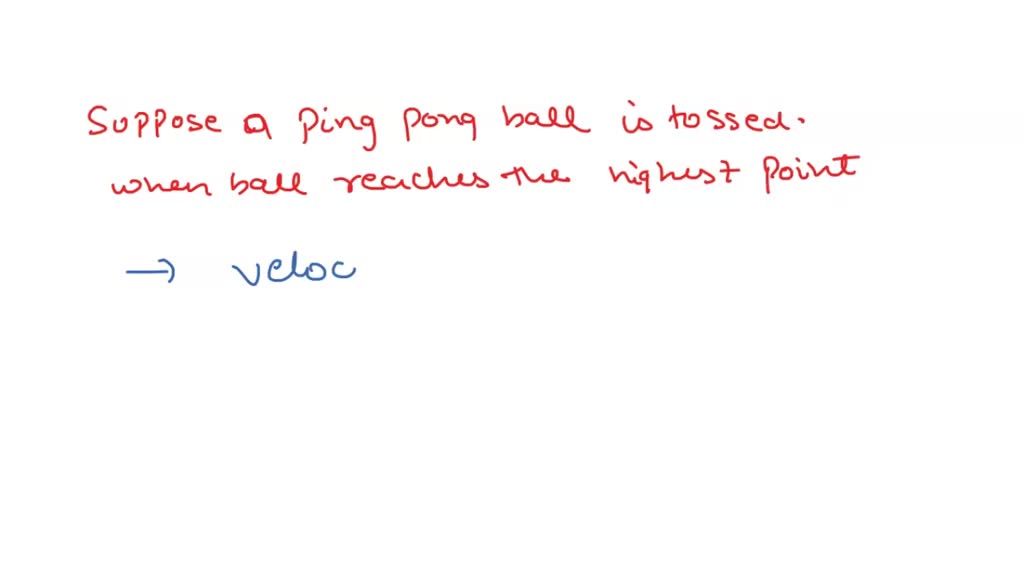 Suppose a Ping pong ball is tossed.
when ball reaches the highest point
→ veloc